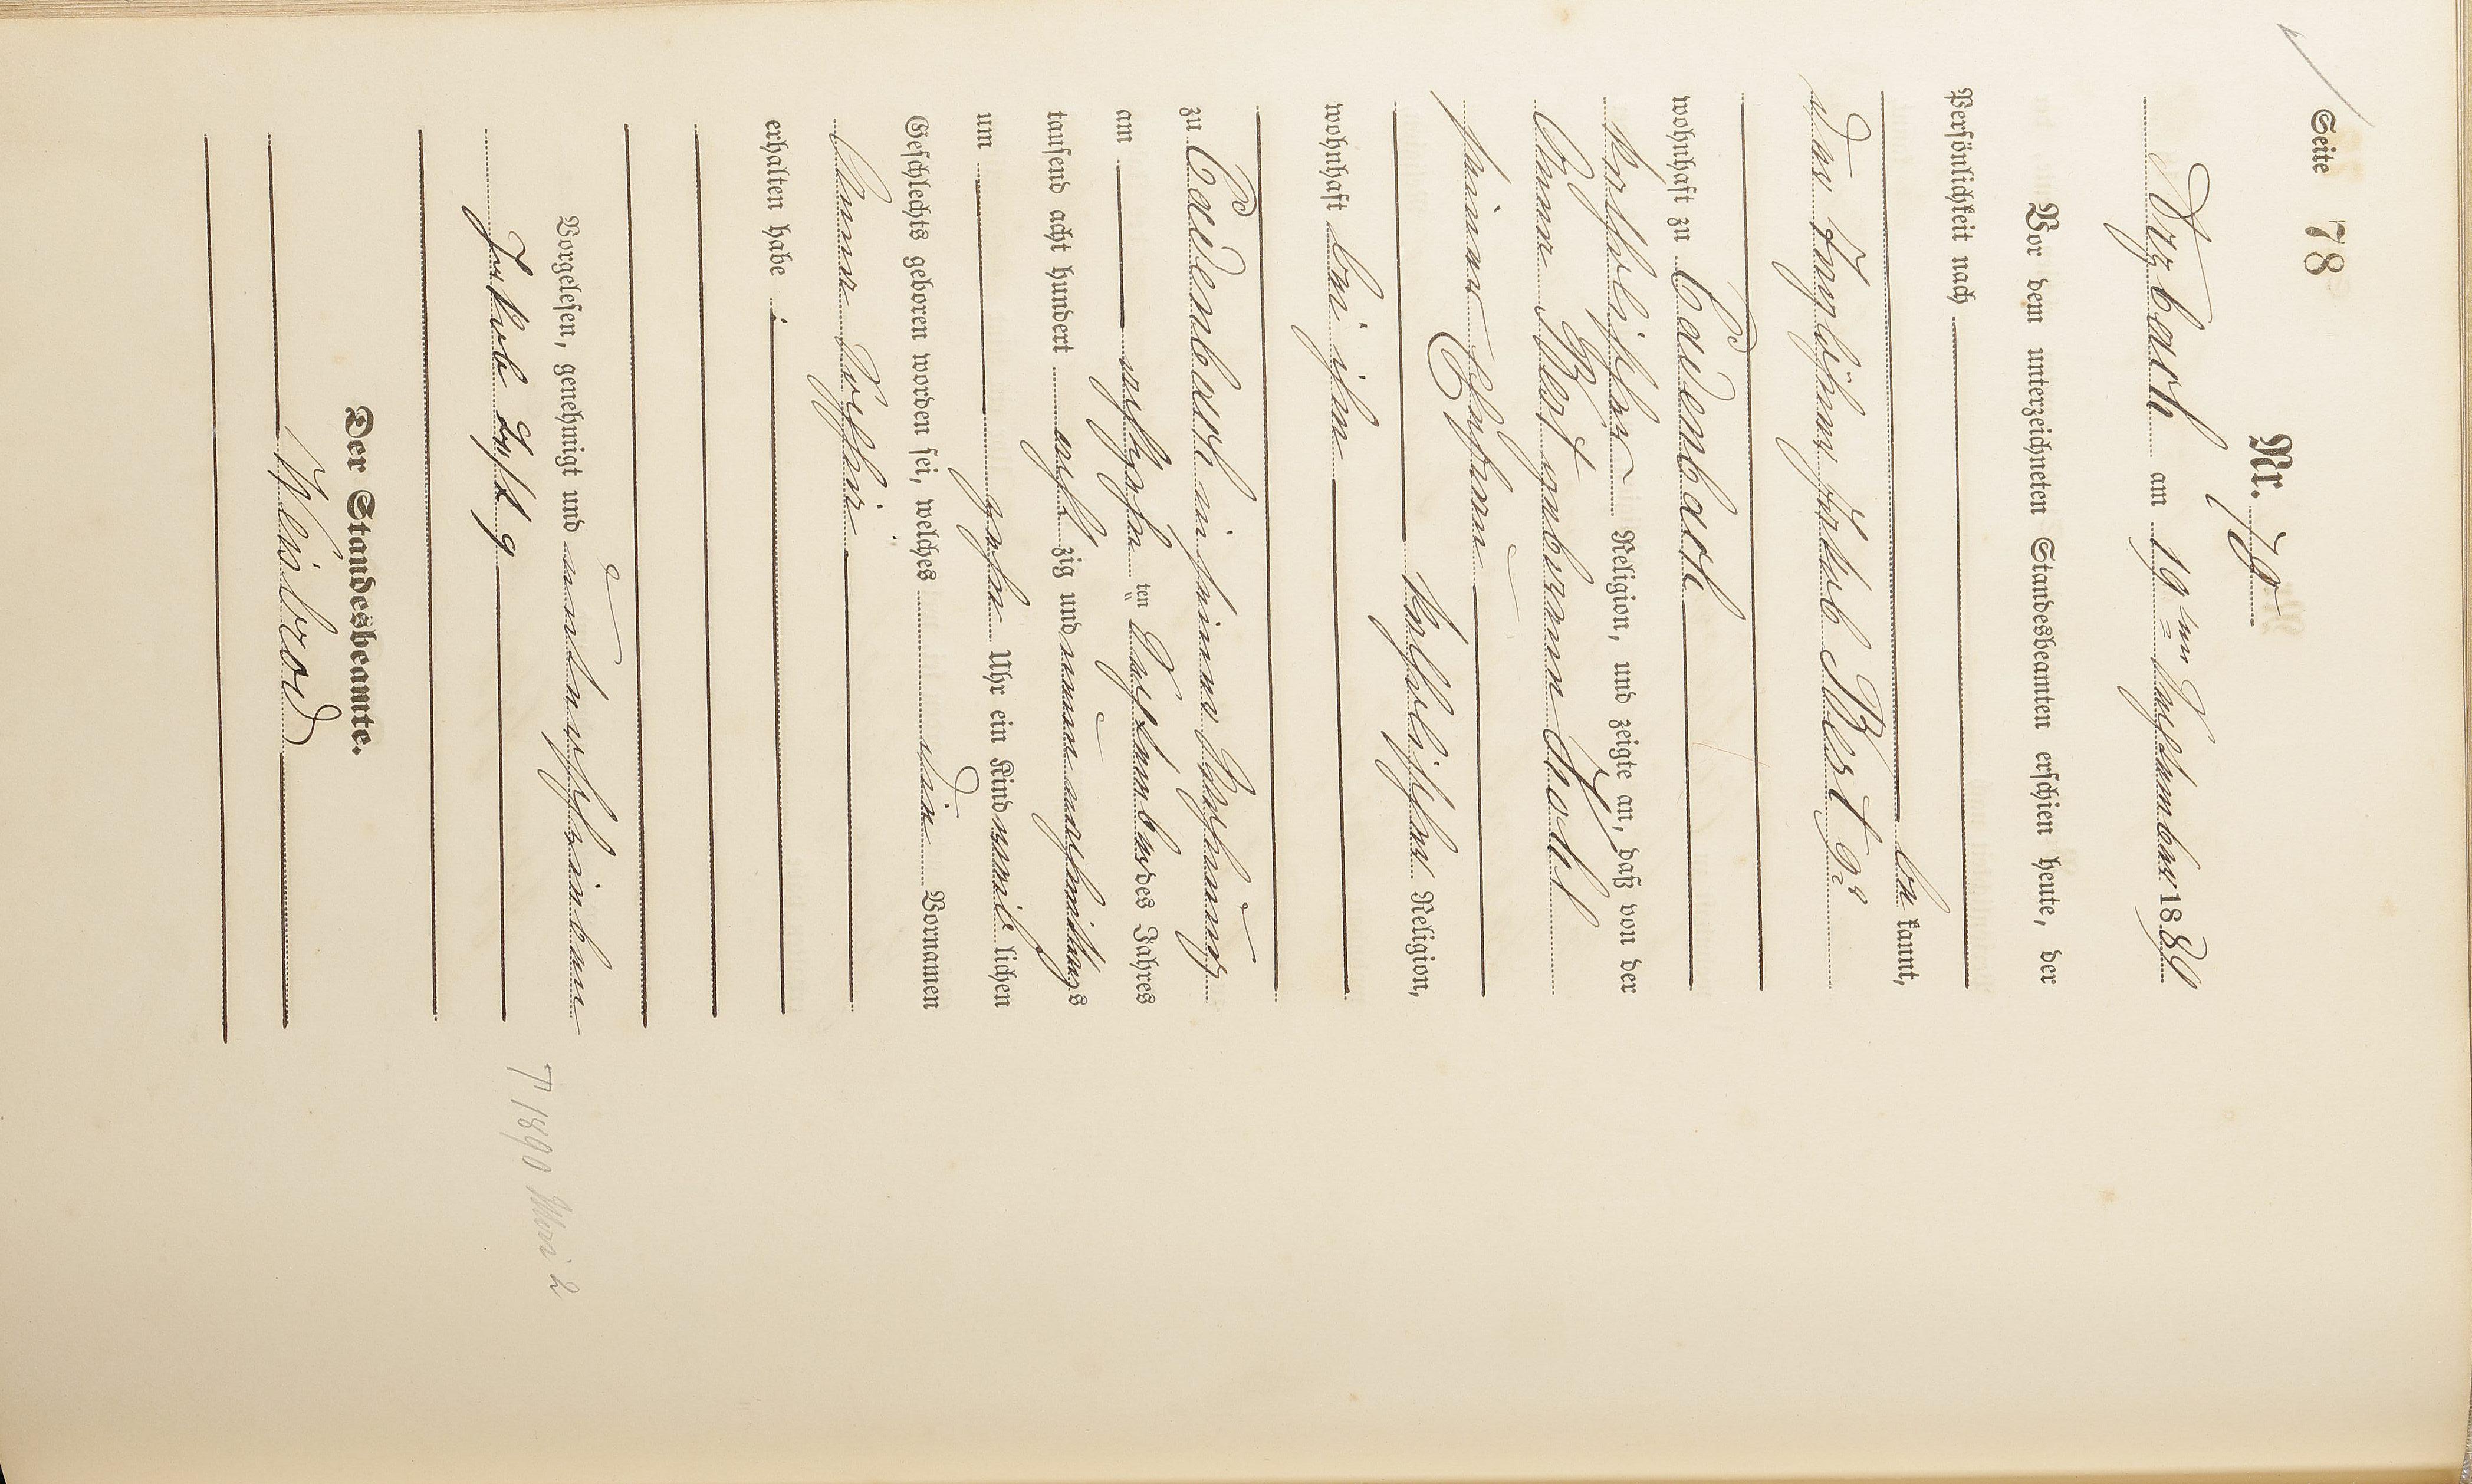 Seite 78
Nr. 78
Arzbach am 19ten September 1889
Vor dem unterzeichneten Standesbeamten erschien heute, der
Persönlichkeit nach
be kannt,
der Taglöhner Jakob Best 9r
wohnhaft zu Cadenbach
katholischer Religion, und zeigte an, daß von der
Anna Best geborenen
seiner Ehefrau
katholischer Religion,
wohnhaft bei ihm
zu Cadenbach in seiner Behausung
am achtzehn ten September des Jahres
tausend acht hundert acht zig und neun nachmittags
um zehn Uhr ein Kind weib lichen
Geschlechts geboren worden sei, welches die Vornamen
Anna Sophie
erhalten habe.
Vorgelesen, genehmigt und unterschrieben
Jakob Best 9
Der Standesbeamte.
Weisbrod
† 1890 Mai 2